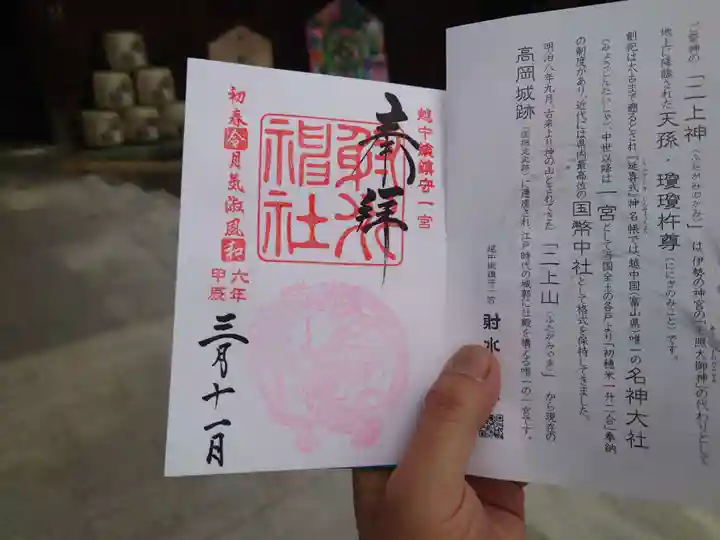 二上神(ふたがみのかみ)」は、伊勢の神宮の「天照大御神」の代わりとして
地上に降臨された天孫・瓊瓊杵尊(ににぎのみこと)です。
創祀は太古まで遡るとされ『延喜式』神名帳では、越中国(富山県)唯一の名神大社
(みょうじんたいしゃ)、中世以降は一宮として当国全土の各戸より「初穂米一升二合」奉納
の制度があり、近代には県内最高位の国幣中社として格式を保持してきました。
明治八年九月、古来より神の山とされてきた「二上山(ふたがみやま)」から現在の
に遷座され、江戸時代の城郭に社殿を構える唯一の一宮です。
高岡城跡
越中総鎮守一宮 射水
越中総鎮守一宮
奉拝
射水
神社
初春令月気淑風和
六年
甲辰
三月十一日